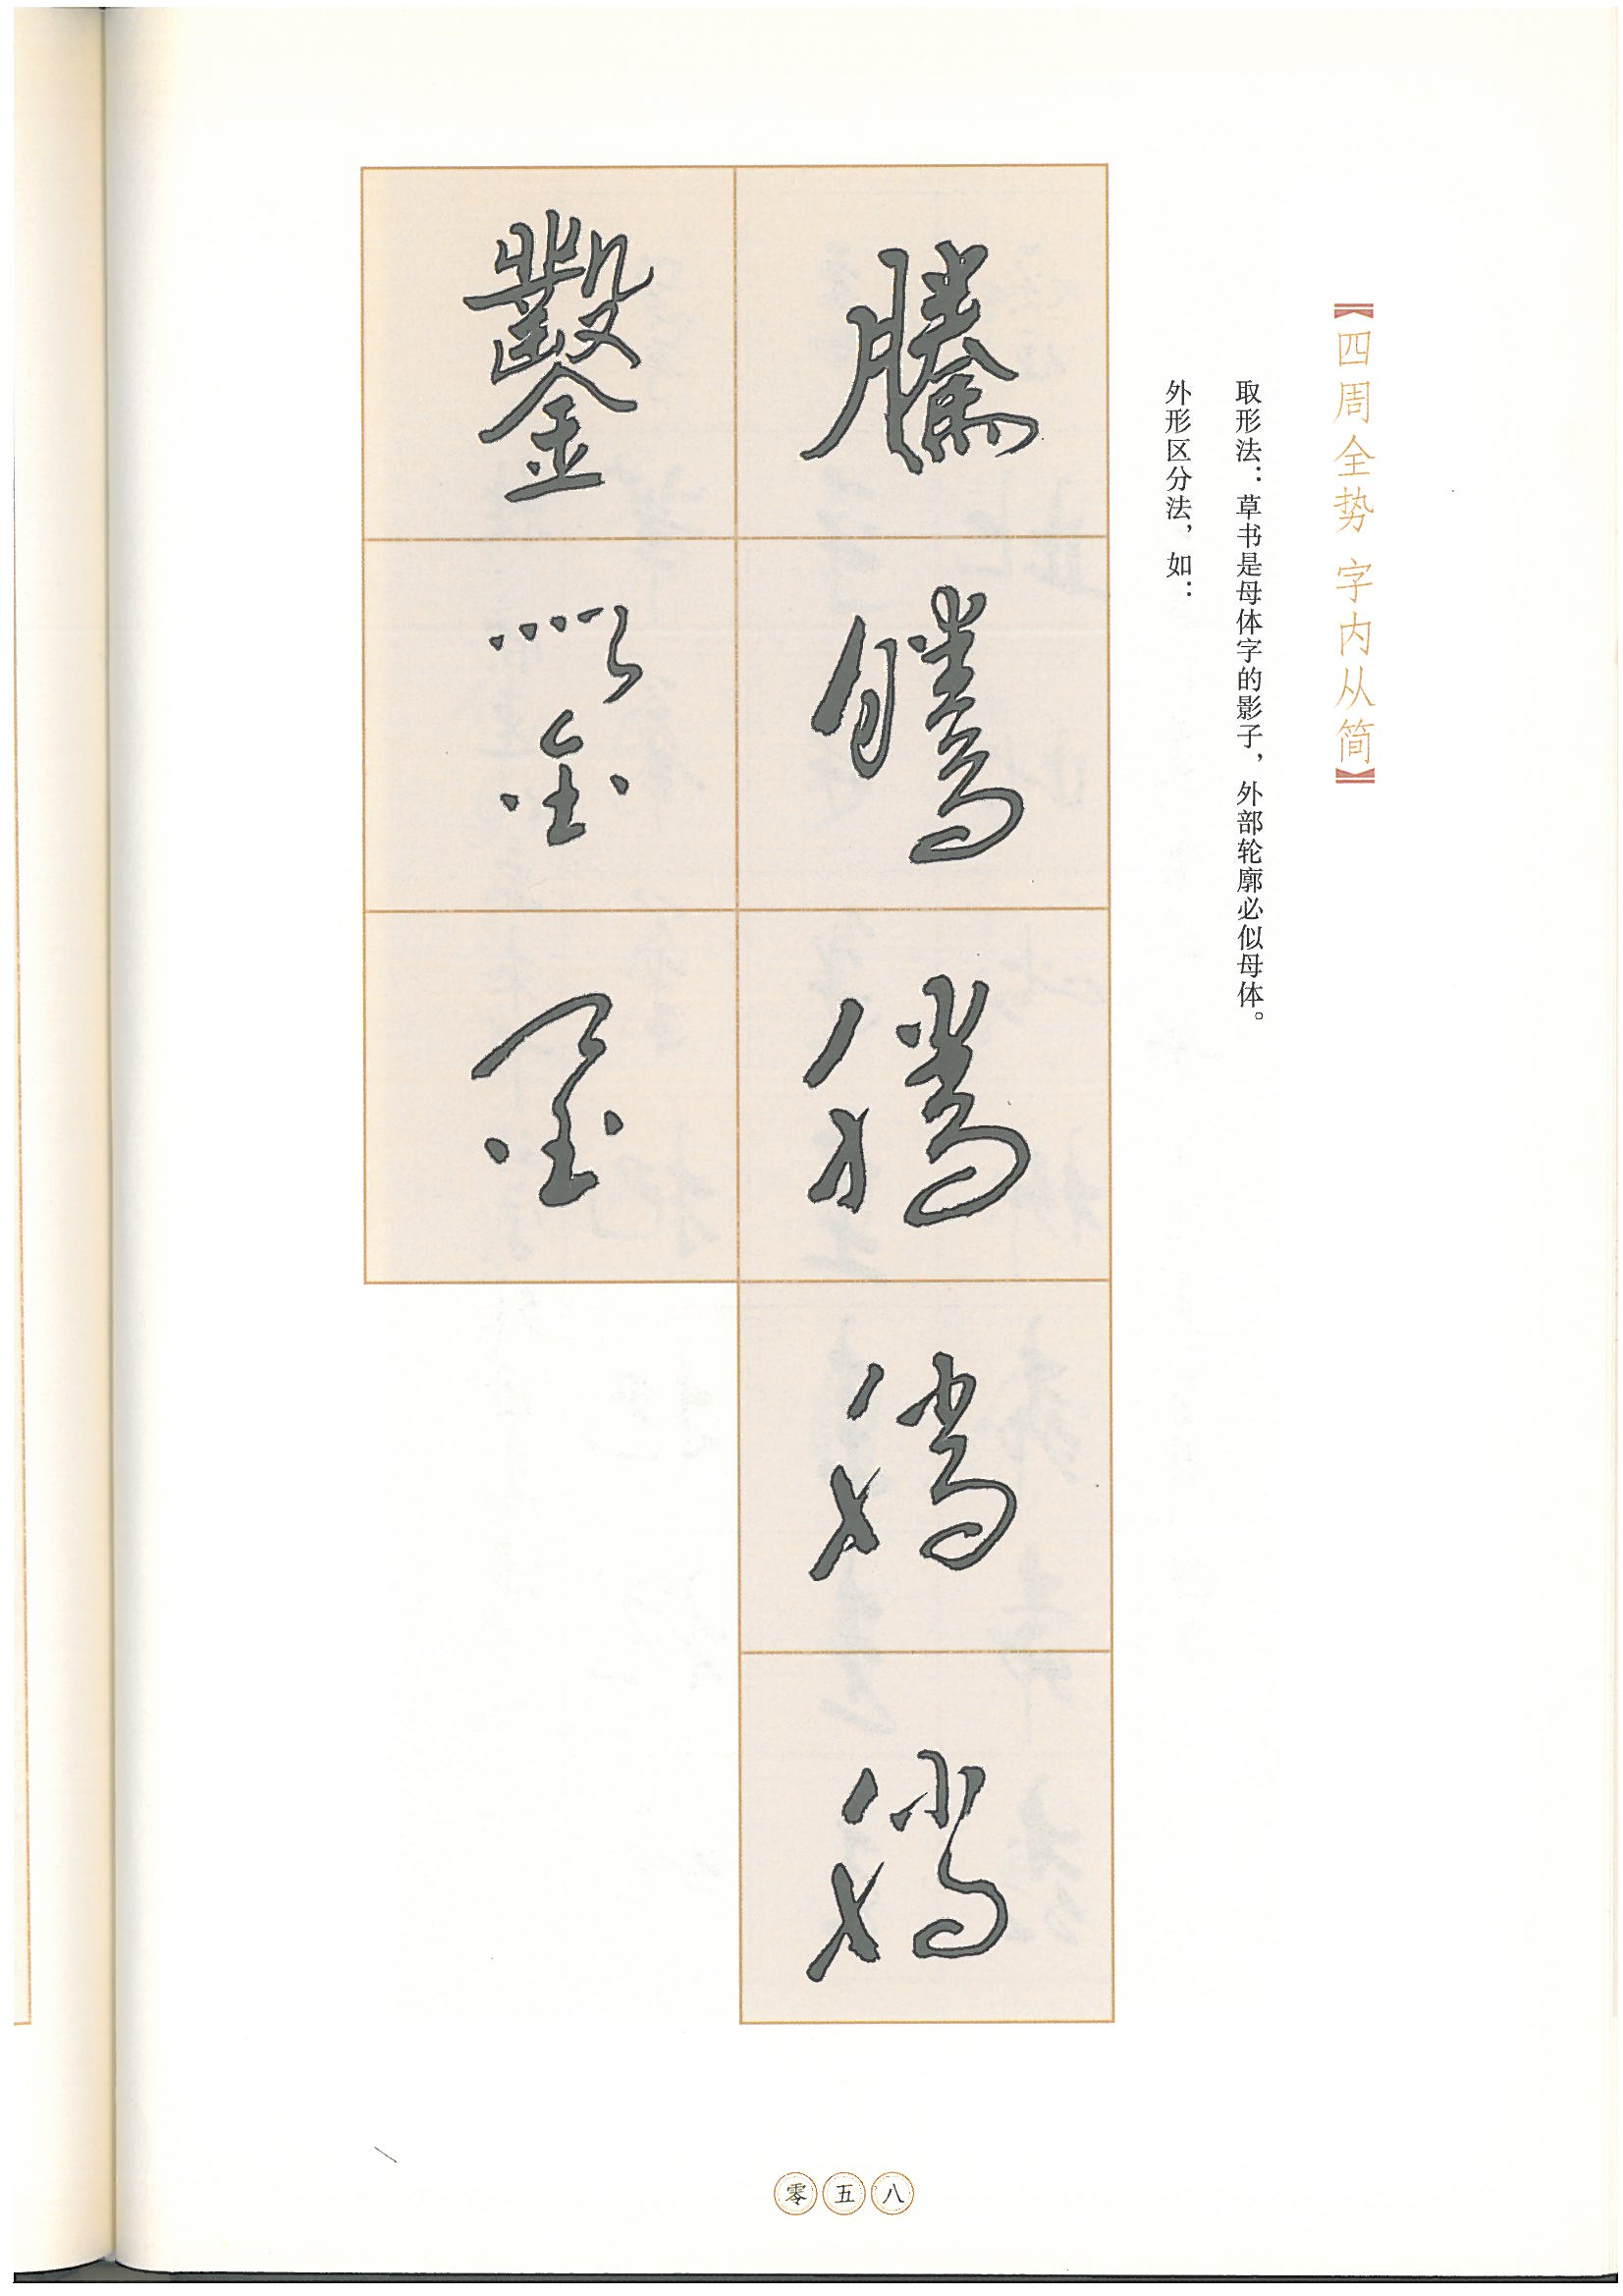 【四周全势 字内从简】
取形法：草书是母体字的影子，外部轮廓必似母体。
外形区分法，如：
腾腾腾腾腾
鑿鑿鑿
零五八